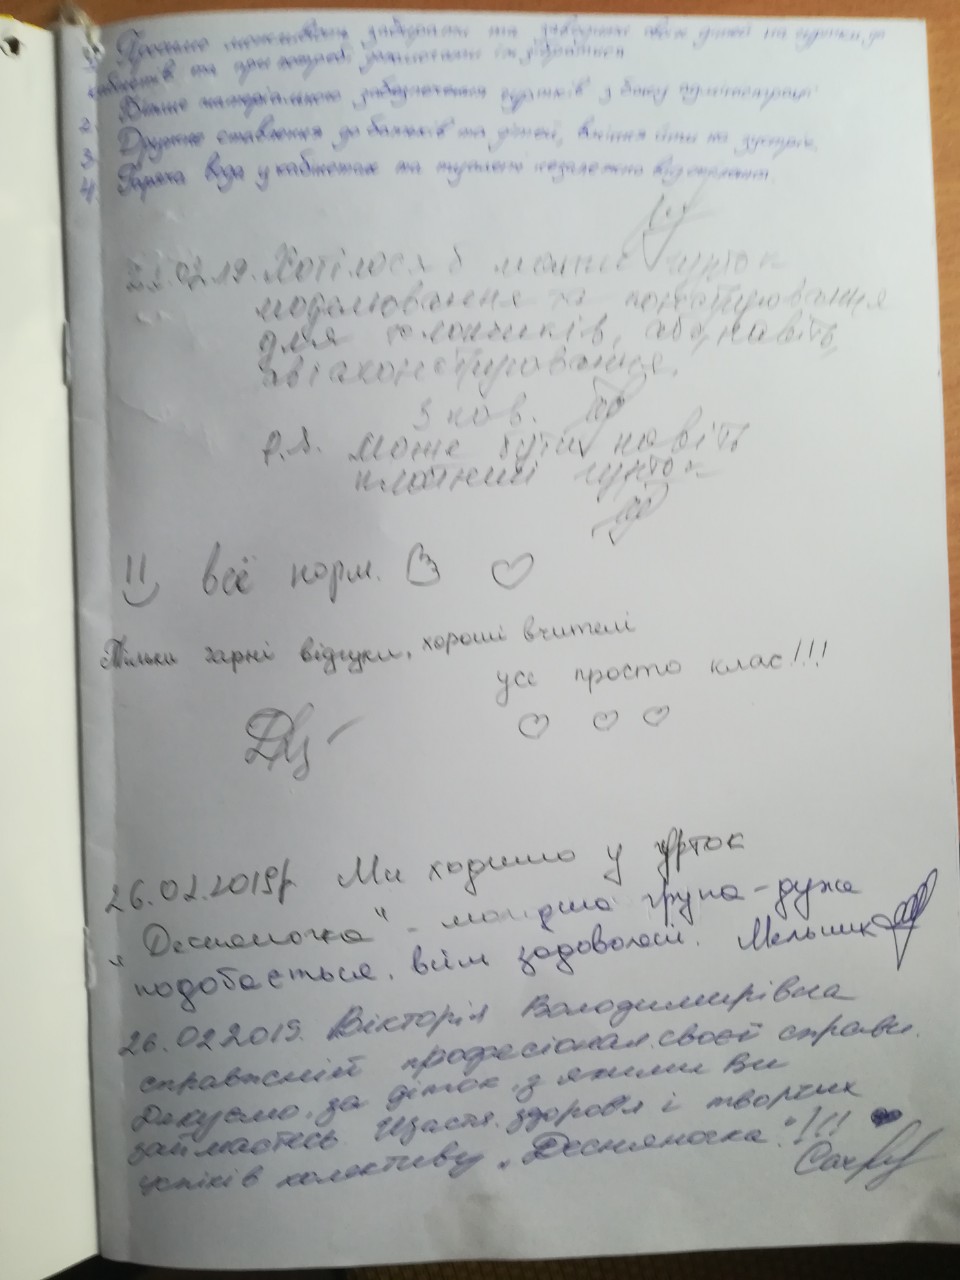 1. Просимо можливість забирати та заводити своїх дітей на гуртки до
кабінетів та при потребі допомагати їм
2. Більше матеріального забезпечення гуртків з боку адміністрації
3. Дружнє ставлення до батьків та дітей, вміння йти на зустріч.
4. Гаряча вода у кабінетах та туалеті незалежно від
21.02.19. Хотілося б мати гурток
моделювання та конструювання
для хлопчиків, або, навіть,
авіаконструювання.
З пов.
P.S. може бути навіть
платний гурток
всё норм.
Тільки гарні відгуки, хороші вчителі
усе просто клас!!!
26.02.2019р Ми ходимо у гурток
"Десняночка" - молодша група - дуже
подобається, всім задоволені. Мельник
26.02.2019. Вікторія Володимирівна
справжній професіонал своєї справи.
Дякуємо за діток, з якими Ви
займаєтесь. Щастя, здоров'я і творчих
успіків колективу "Десняночка"!!!